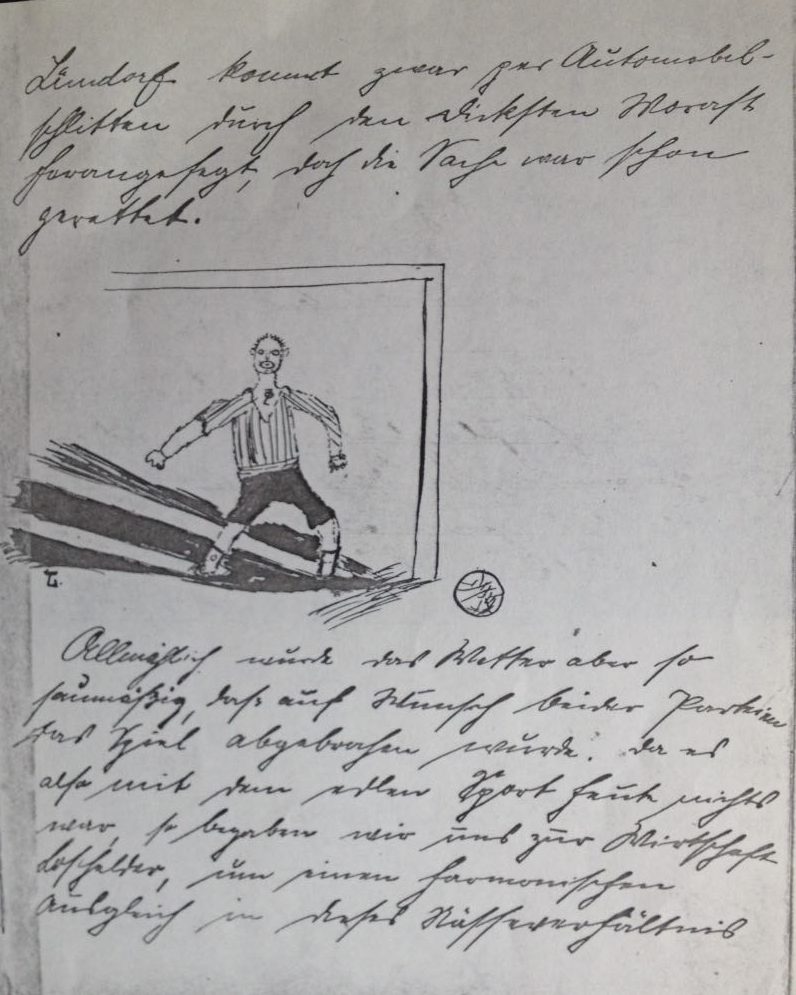 Lindorf kommt zwar per Automobil-
schlitten durch den dicksten Morast
herangefegt, doch die Sache war schon
gerettet.
L.
Allmählich wurde das Wetter aber so
saumäßig, daß auf Wunsch beider Parteien
das Spiel abgebrochen wurde. Da es
also mit dem edlen Sport heute nichts
war, so begaben wir uns zur Wirtschaft
um einen harmonischen
Ausgleich in dieses Nässeverhältnis